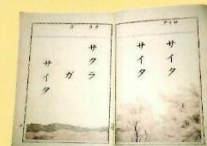 サイタ
サイタ
サクラ
ガ
サイタ